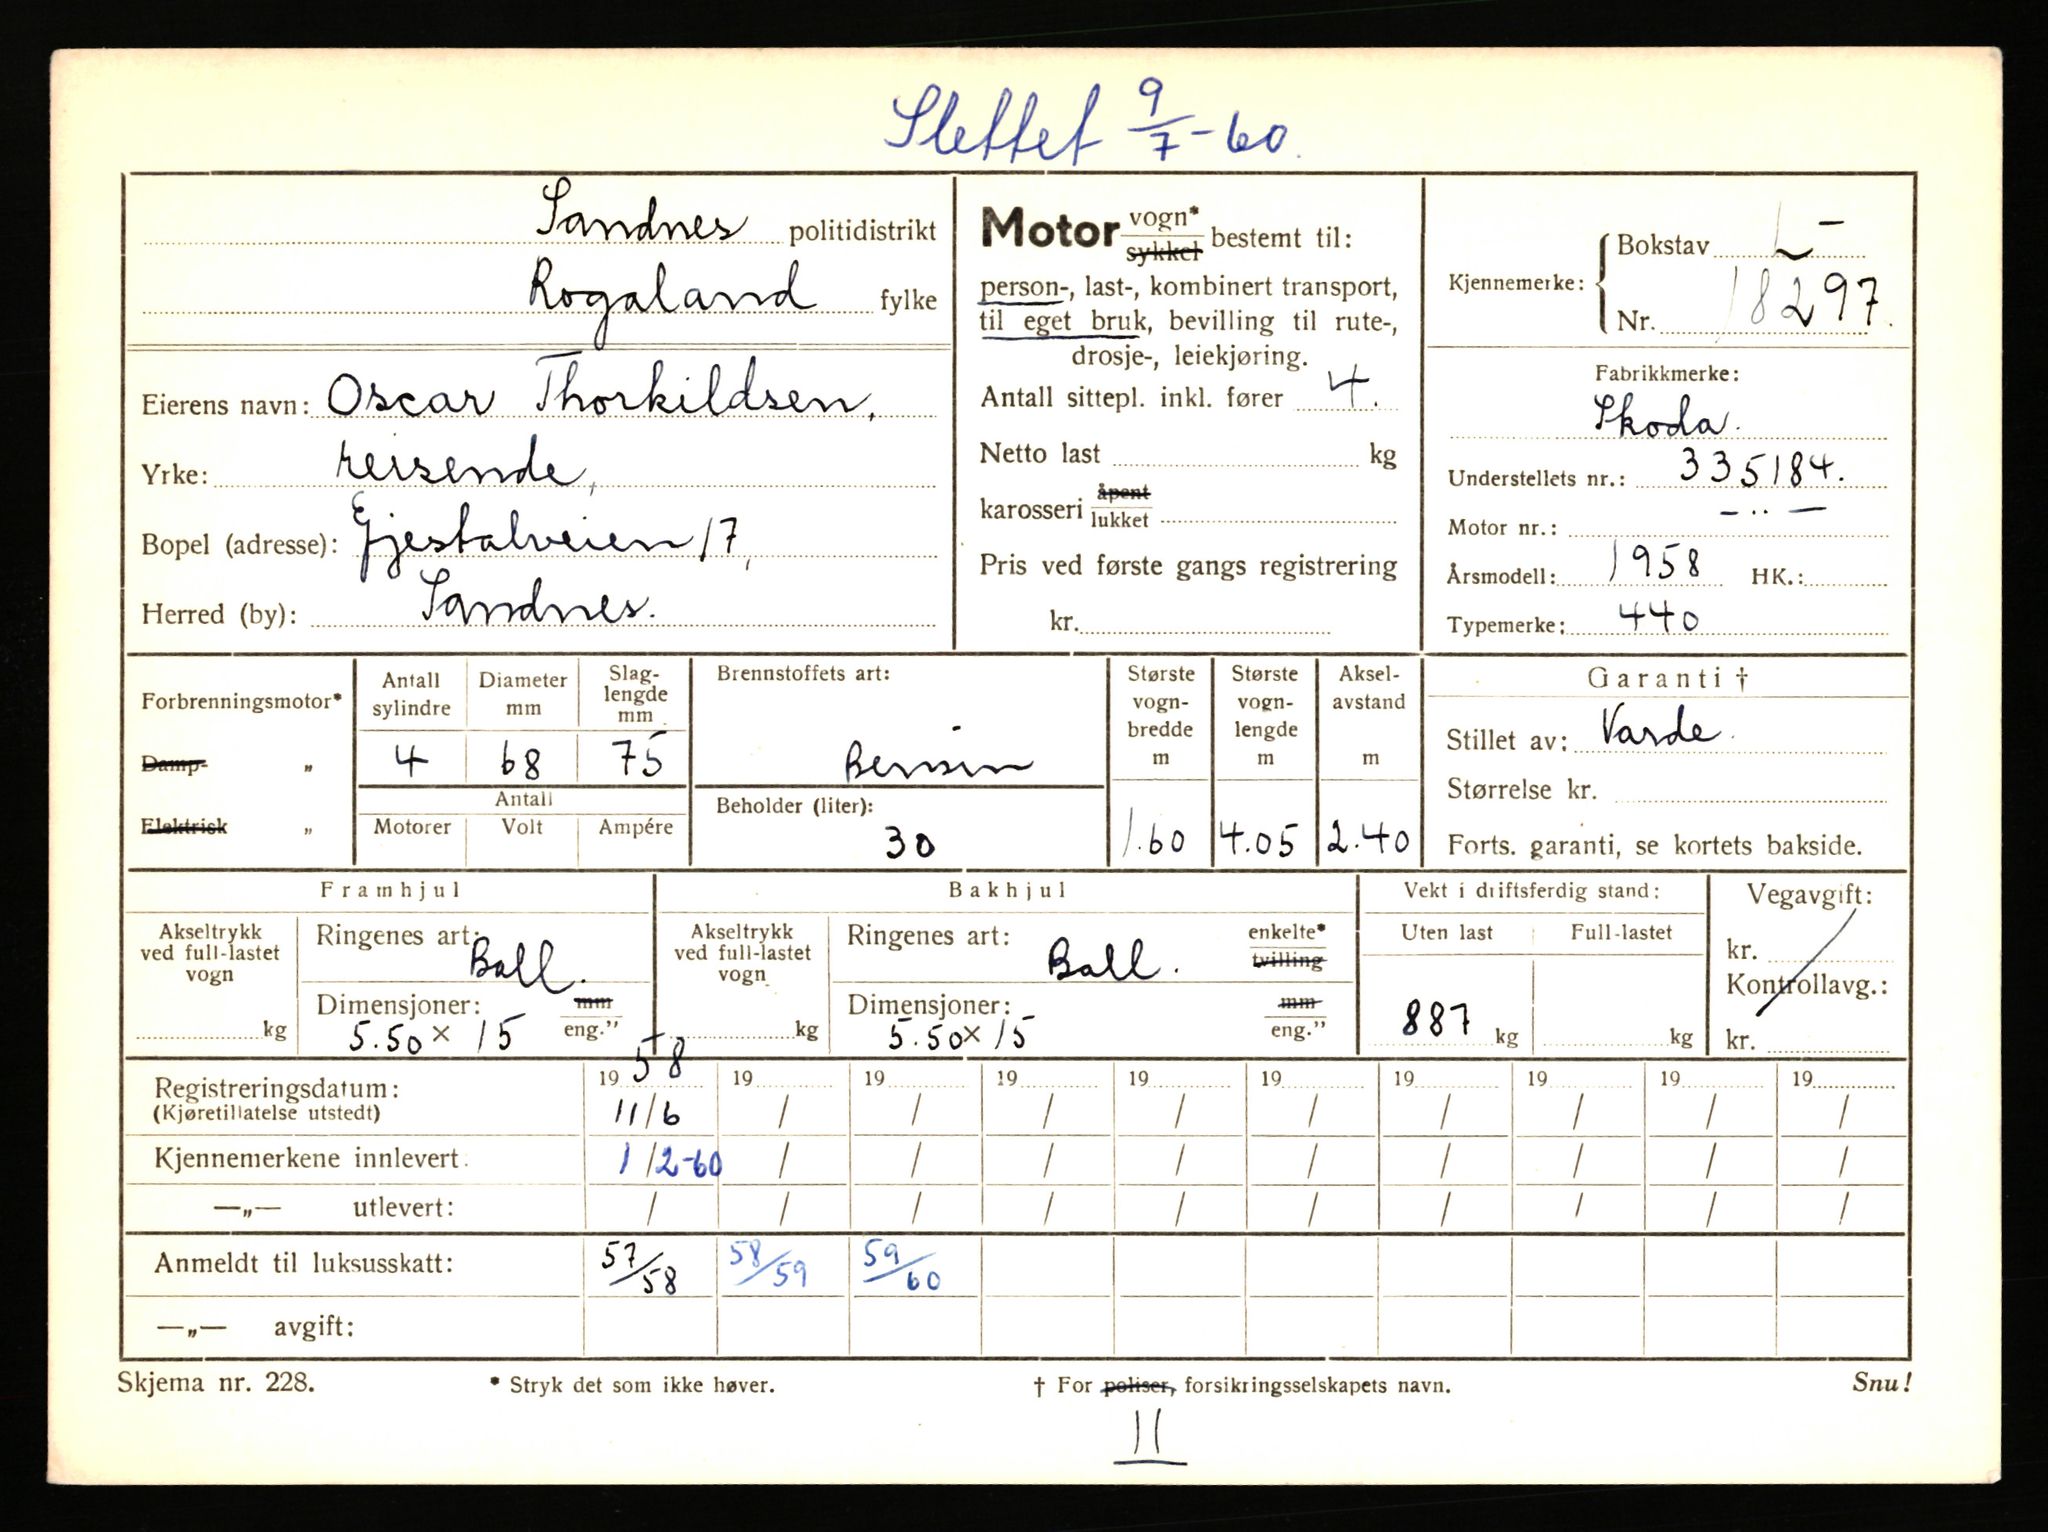 Slettet 9/7-60.
Sandnes politidistrikt
Rogaland fylke
Eierens navn: Oscar Thorkildsen,
Yrke: reisende,
Bopel (adresse): Gjestalveien 17,
Herred (by): Sandnes.
Motor vogn* / sykkel bestemt til:
person-, last-, kombinert transport,
til eget bruk, bevilling til rute-,
drosje-, leiekjøring.
Antall sittepl. inkl. fører 4.
Netto last kg
karosseri åpent / lukket
Pris ved første gangs registrering
kr.
Kjennemerke: Bokstav L-
Nr. 18297.
Fabrikkmerke:
Skoda.
Understellets nr.: 335184.
Motor nr.: - ·· -
Årsmodell: 1958 HK.:
Typemerke: 440
Forbrenningsmotor*
Damp- „
Elektrisk „
Antall sylindre Diameter mm Slag-lengde mm
4 68 75
Antall
Motorer Volt Ampére
Brennstoffets art:
Bensin
Beholder (liter):
30
Største vogn-bredde m Største vogn-lengde m Aksel-avstand m
1.60 4.05 2.40
Garanti †
Stillet av: Varde.
Størrelse kr.
Forts. garanti, se kortets bakside.
Framhjul
Akseltrykk ved full-lastet vogn
kg
Ringenes art: Ball.
Dimensjoner: mm / eng.”
5.50 × 15
Bakhjul
Akseltrykk ved full-lastet vogn
kg
Ringenes art: Ball. enkelte* / tvilling
Dimensjoner: mm / eng.”
5.50 × 15
Vekt i driftsferdig stand:
Uten last Full-lastet
887 kg kg
Vegavgift:
kr.
Kontrollavg.:
kr.
Registreringsdatum: 1958 19 19 19 19 19 19 19 19 19
(Kjøretillatelse utstedt) 11/6 / / / / / / / / /
Kjennemerkene innlevert: 1/2-60 / / / / / / / / /
—„— utlevert: / / / / / / / / / /
Anmeldt til luksusskatt: 57/58 58/59 59/60
—„— avgift:
Skjema nr. 228. * Stryk det som ikke høver. † For poliser, forsikringsselskapets navn. Snu!
11